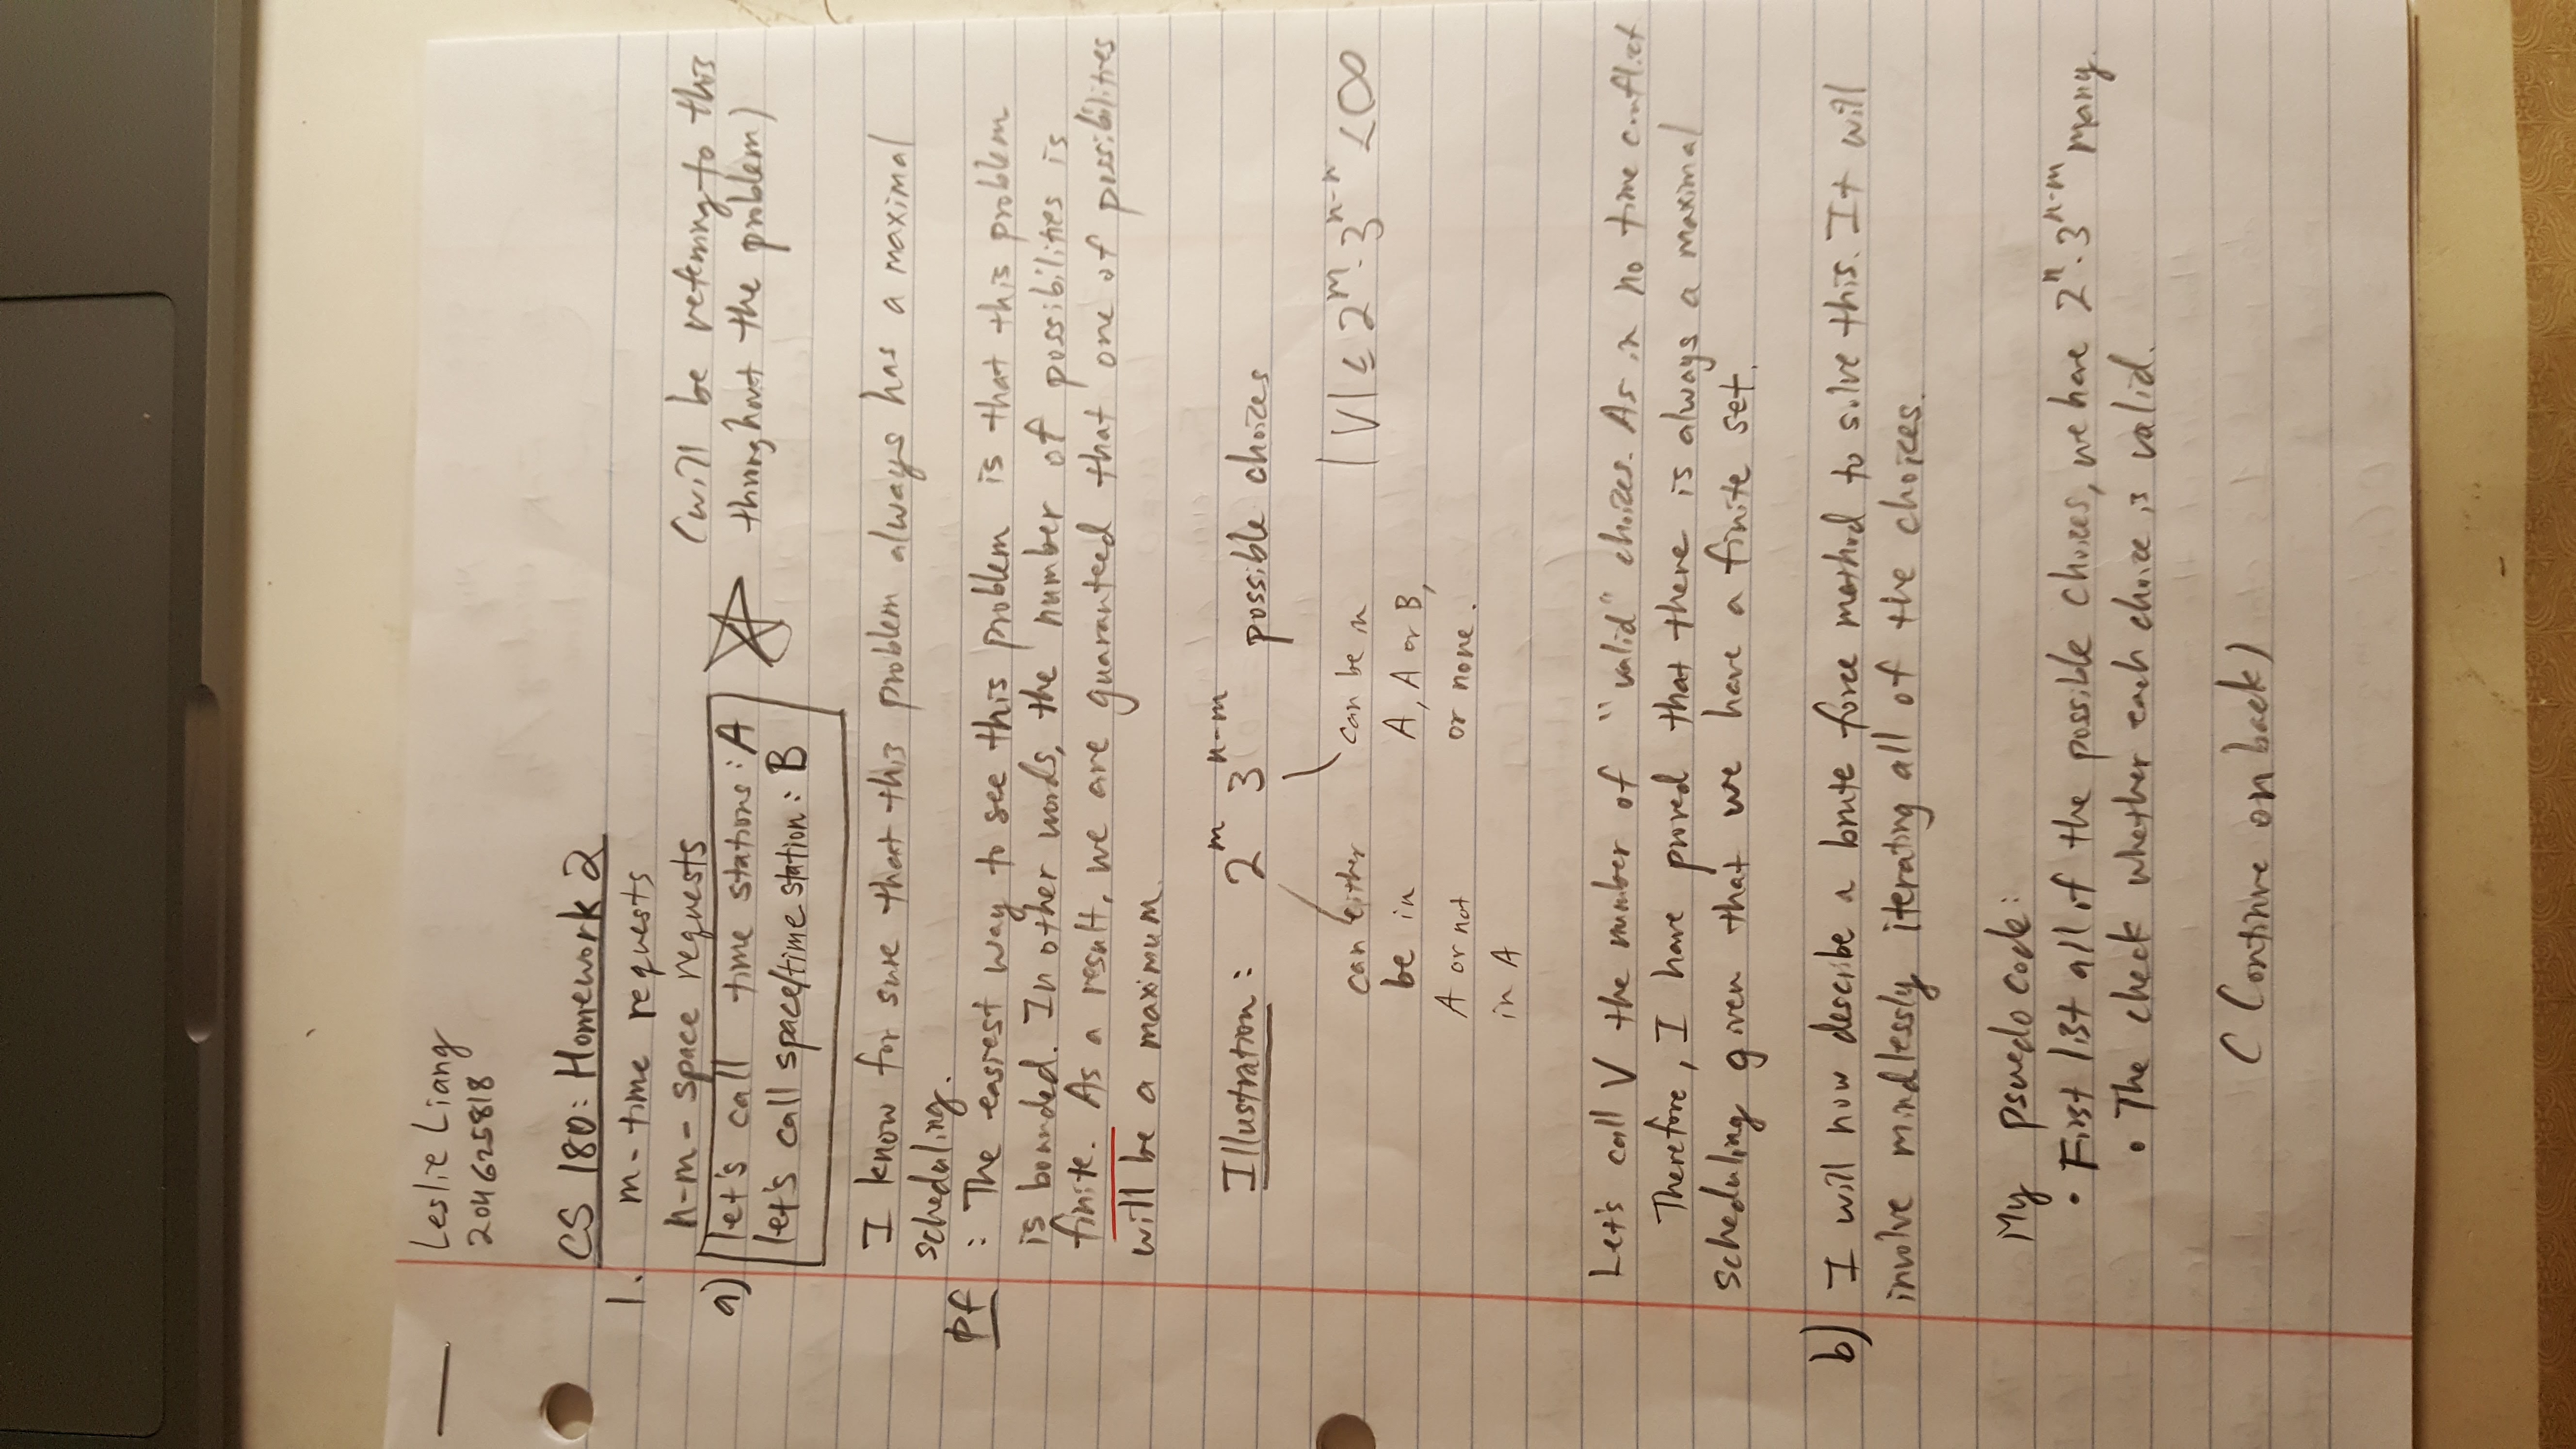 Leslie Liang
204625818
CS 180: Homework 2
1. m-time requests
n-m-space requests
a) let's call time stations: A
let's call space/time station: B
(will be referring to this
throughout the problem)
I know for sure that this problem always has a maximal
scheduling.
pf : The easiest way to see this problem is that this problem
is bounded. In other words, the number of possibilities is
finite. As a result, we are guaranteed that one of possibilities
will be a maximum.
Illustration: 2^m 3^n-m possible choices
can either
be in
A or not
in A
can be in
A, A or B,
or none.
|V| ≤ 2^m · 3^n-n < ∞
Let's call V the number of "valid" choices. As in no time conflict
Therefore, I have proved that there is always a maximal
scheduling given that we have a finite set.
b) I will now describe a brute force method to solve this. It will
involve mindlessly iterating all of the choices.
My psuedo code:
• First list all of the possible choices, we have 2^n · 3^n-m many.
• The check whether each choice is valid.
(Continue on back)